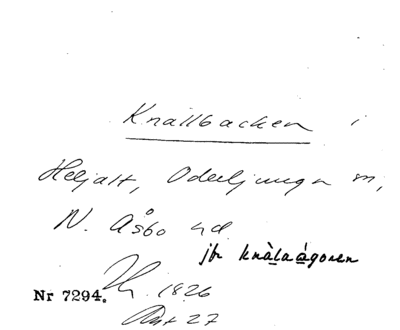 Knällbacken i
Heljalt, Oderljunga sn,
N. Åsbo hd
jfr knàlaágoren
Nr 7294. 1826
Akt 27